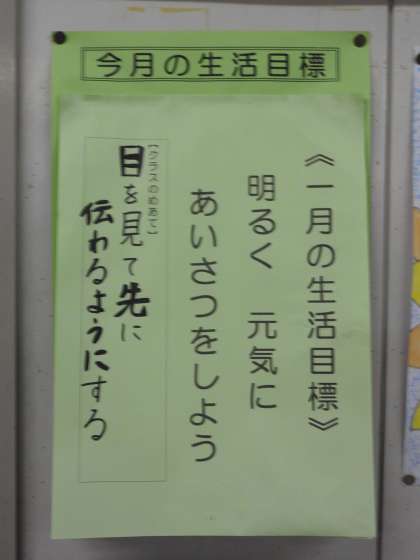 今月の生活目標
《一月の生活目標》
明るく　元気に
あいさつをしよう
【クラスのめあて】
目を見て先に
伝わるようにする